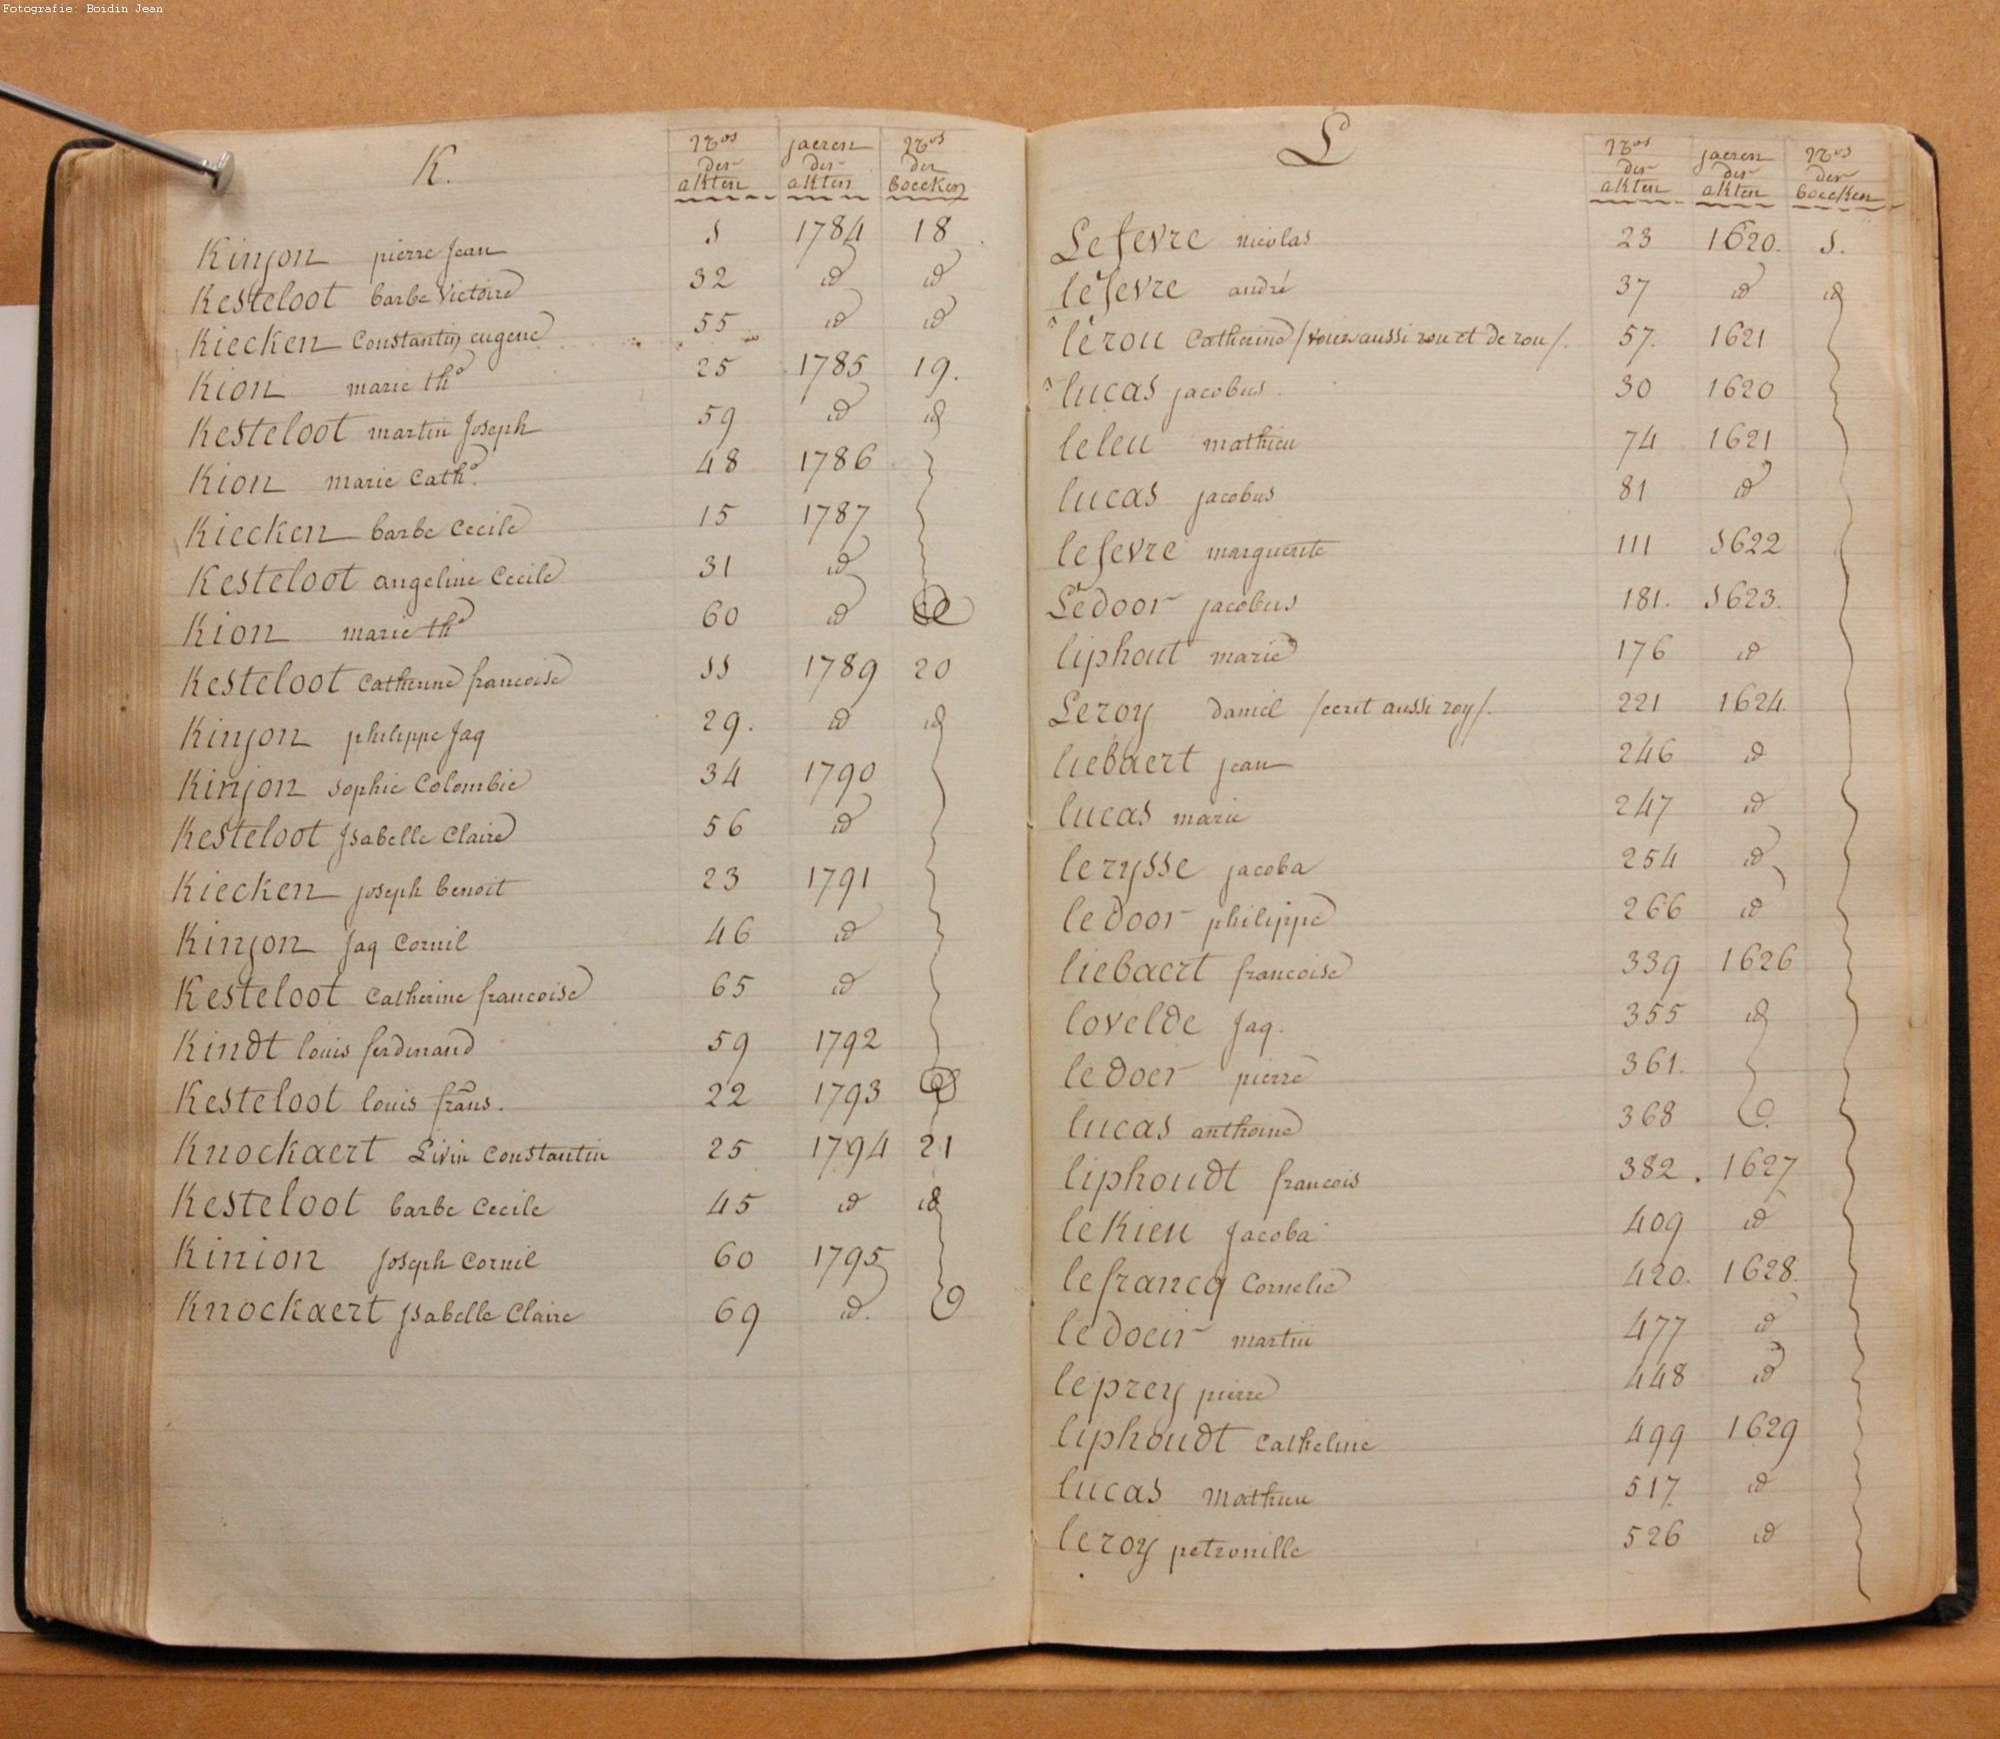 Fotografie: Boidin Jean
K.
Nros der akten
jaeren der akten
Nros der boecken
Kinjon pierre Jean 1 1784 18
Kesteloot barbe Victoire 32 id id
Kiecken Constantin eugene 55 id id
Kion marie the 25 1785 19.
Kesteloot martin Joseph 59 id id
Kion marie Cathe. 48 1786
Kiecken barbe Cecile 15 1787
Kesteloot angeline Cecile 31 id
Kion marie the 60 id
Kesteloot Catherine francoise 11 1789 20
Kinjon philippe Jaq 29. id id
Kinjon Sophie Colombie 34 1790
Kesteloot Jsabelle Claire 56 id
Kiecken joseph benoit 23 1791
Kinjon Jaq Cornil 46 id
Kesteloot Catherine francoise 65 id
Kindt louis ferdinand 59 1792
Kesteloot louis frans. 22 1793
Knockaert Livin Constantin 25 1794 21
Kesteloot barbe Cecile 45 id id
Kinion Joseph Cornil 60 1795
Knockaert Jsabelle Claire 69 id.
L
Nros der akten
jaeren der akten
Nros der boecken
Lefevre nicolas 23 1620. 1.
lefevre andré 37 id id
lerou Catherine /voire aussi rou et de rou/. 57. 1621
lucas jacobus. 30 1620
leleu mathieu 74 1621
lucas jacobus 81 id
lefevre marguerite 111 1622
Ledoor jacobus 181. 1623.
liphout marie 176 id
Leroy daniel /ecrit aussi roy/. 221 1624.
liebaert jean 246 id
lucas marie 247 id
lerysse jacoba 254 id
ledoor philippe 266 id
liebaert francoise 339 1626
lovelde Jaq. 355 id
ledoer pierre 361.
lucas anthoine 368
liphoudt francois 382. 1627
leKieu Jacoba 409 id
lefrancq Cornelie 420. 1628.
ledoeir martin 477 id
leprey pierre 448 id
liphoudt Catheline 499 1629
lucas Mathieu 517. id
leroy petronille 526 id